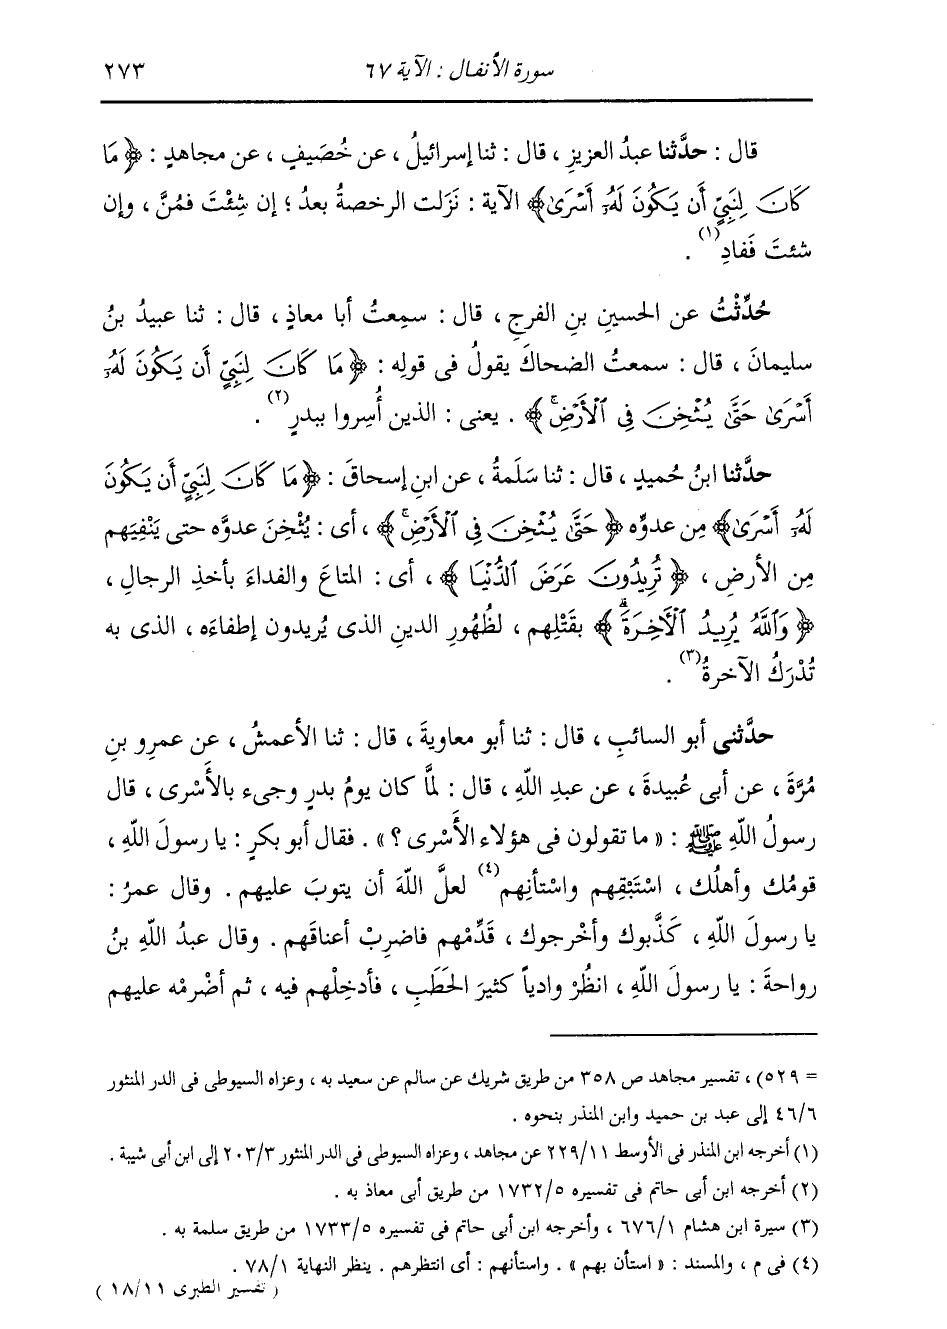 سورة الأنفال : الآية ٦٧
٢٧٣
قال : حدَّثنا عبدُ العزيزِ ، قال : ثنا إسرائيلُ ، عن خُصَيفٍ ، عن مجاهدٍ : ﴿ مَا
كَانَ لِنَبِيٍّ أَن يَكُونَ لَهُۥٓ أَسْرَىٰ﴾ الآية : نَزَلت الرخصةُ بعدُ ؛ إن شِئْتَ فمُنَّ ، وإن
شئتَ فَفادِ(١) .
حُدِّثْتُ عن الحسينِ بنِ الفرجِ ، قال : سمِعتُ أبا معاذٍ ، قال : ثنا عبيدُ بنُ
سليمانَ ، قال : سمعتُ الضحاكَ يقولُ فى قولِه : ﴿ مَا كَانَ لِنَبِيٍّ أَن يَكُونَ لَهُۥٓ
أَسْرَىٰ حَتَّىٰ يُثْخِنَ فِي ٱلْأَرْضِۚ ﴾ . يعنى : الذين أُسِروا ببدرٍ(٢) .
حدَّثنا ابنُ حُميدٍ ، قال : ثنا سَلَمةُ ، عن ابنِ إسحاقَ : ﴿ مَا كَانَ لِنَبِيٍّ أَن يَكُونَ
لَهُۥٓ أَسْرَىٰ﴾ مِن عدوِّه ﴿ حَتَّىٰ يُثْخِنَ فِي ٱلْأَرْضِۚ ﴾ ، أى : يُثْخِنَ عدوَّه حتى يَنْفِيَهم
مِن الأرضِ ، ﴿ تُرِيدُونَ عَرَضَ ٱلدُّنْيَا ﴾ ، أى : المتاعَ والفداءَ بأخذِ الرجالِ ،
﴿ وَٱللَّهُ يُرِيدُ ٱلْآخِرَةَۗ ﴾ بقَتْلِهم ، لظُهُورِ الدينِ الذى يُريدون إطفاءَه ، الذى به
تُدْرَكُ الآخرةُ(٣) .
حدَّثنى أبو السائبِ ، قال : ثنا أبو معاويةَ ، قال : ثنا الأعمشُ ، عن عمرِو بنِ
مُرَّةَ ، عن أبى عُبيدةَ ، عن عبدِ اللَّهِ ، قال : لمَّا كان يومُ بدرٍ وجىء بالأَسْرى ، قال
رسولُ اللَّهِ ﷺ : « ما تقولون فى هؤلاء الأَسْرى ؟ » . فقال أبو بكرٍ : يا رسولَ اللَّهِ ،
قومُك وأهلُك ، اسْتَبْقِهم واسْتأنِهم(٤) لعلَّ اللَّهَ أن يتوبَ عليهم . وقال عمرُ :
يا رسولَ اللَّهِ ، كَذَّبوك وأخْرجوك ، قَدِّمْهم فاضرِبْ أعناقَهم . وقال عبدُ اللَّهِ بنُ
رواحةَ : يا رسولَ اللَّهِ ، انظُرْ وادياً كثيرَ الحَطَبِ ، فأدخِلْهم فيه ، ثم أضْرِمْه عليهم
= ٥٢٩) ، تفسير مجاهد ص ٣٥٨ من طريق شريك عن سالم عن سعيد به ، وعزاه السيوطى فى الدر المنثور
٤٦/٦ إلى عبد بن حميد وابن المنذر بنحوه .
(١) أخرجه ابن المنذر فى الأوسط ٢٢٩/١١ عن مجاهد ، وعزاه السيوطى فى الدر المنثور ٢٠٣/٣ إلى ابن أبى شيبة .
(٢) أخرجه ابن أبى حاتم فى تفسيره ١٧٣٢/٥ من طريق أبى معاذ به .
(٣) سيرة ابن هشام ٦٧٦/١ ، وأخرجه ابن أبى حاتم فى تفسيره ١٧٣٣/٥ من طريق سلمة به .
(٤) فى م ، والمسند : « استأن بهم » . واستأنهم : أى انتظرهم . ينظر النهاية ٧٨/١ .
( تفسير الطبرى ١٨/١١ )